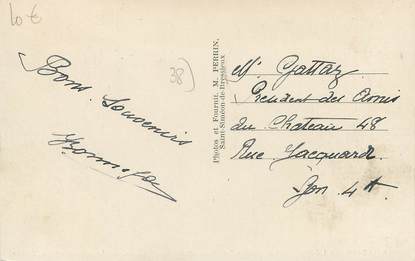 10 €
38)
Bons Souvenirs
Photos et Fournit. M. PERRIN,
Saint-Siméon-de-Bressieux
Mr Gattaz
Président des Amis
du Chateau 48
Rue Jacquard.